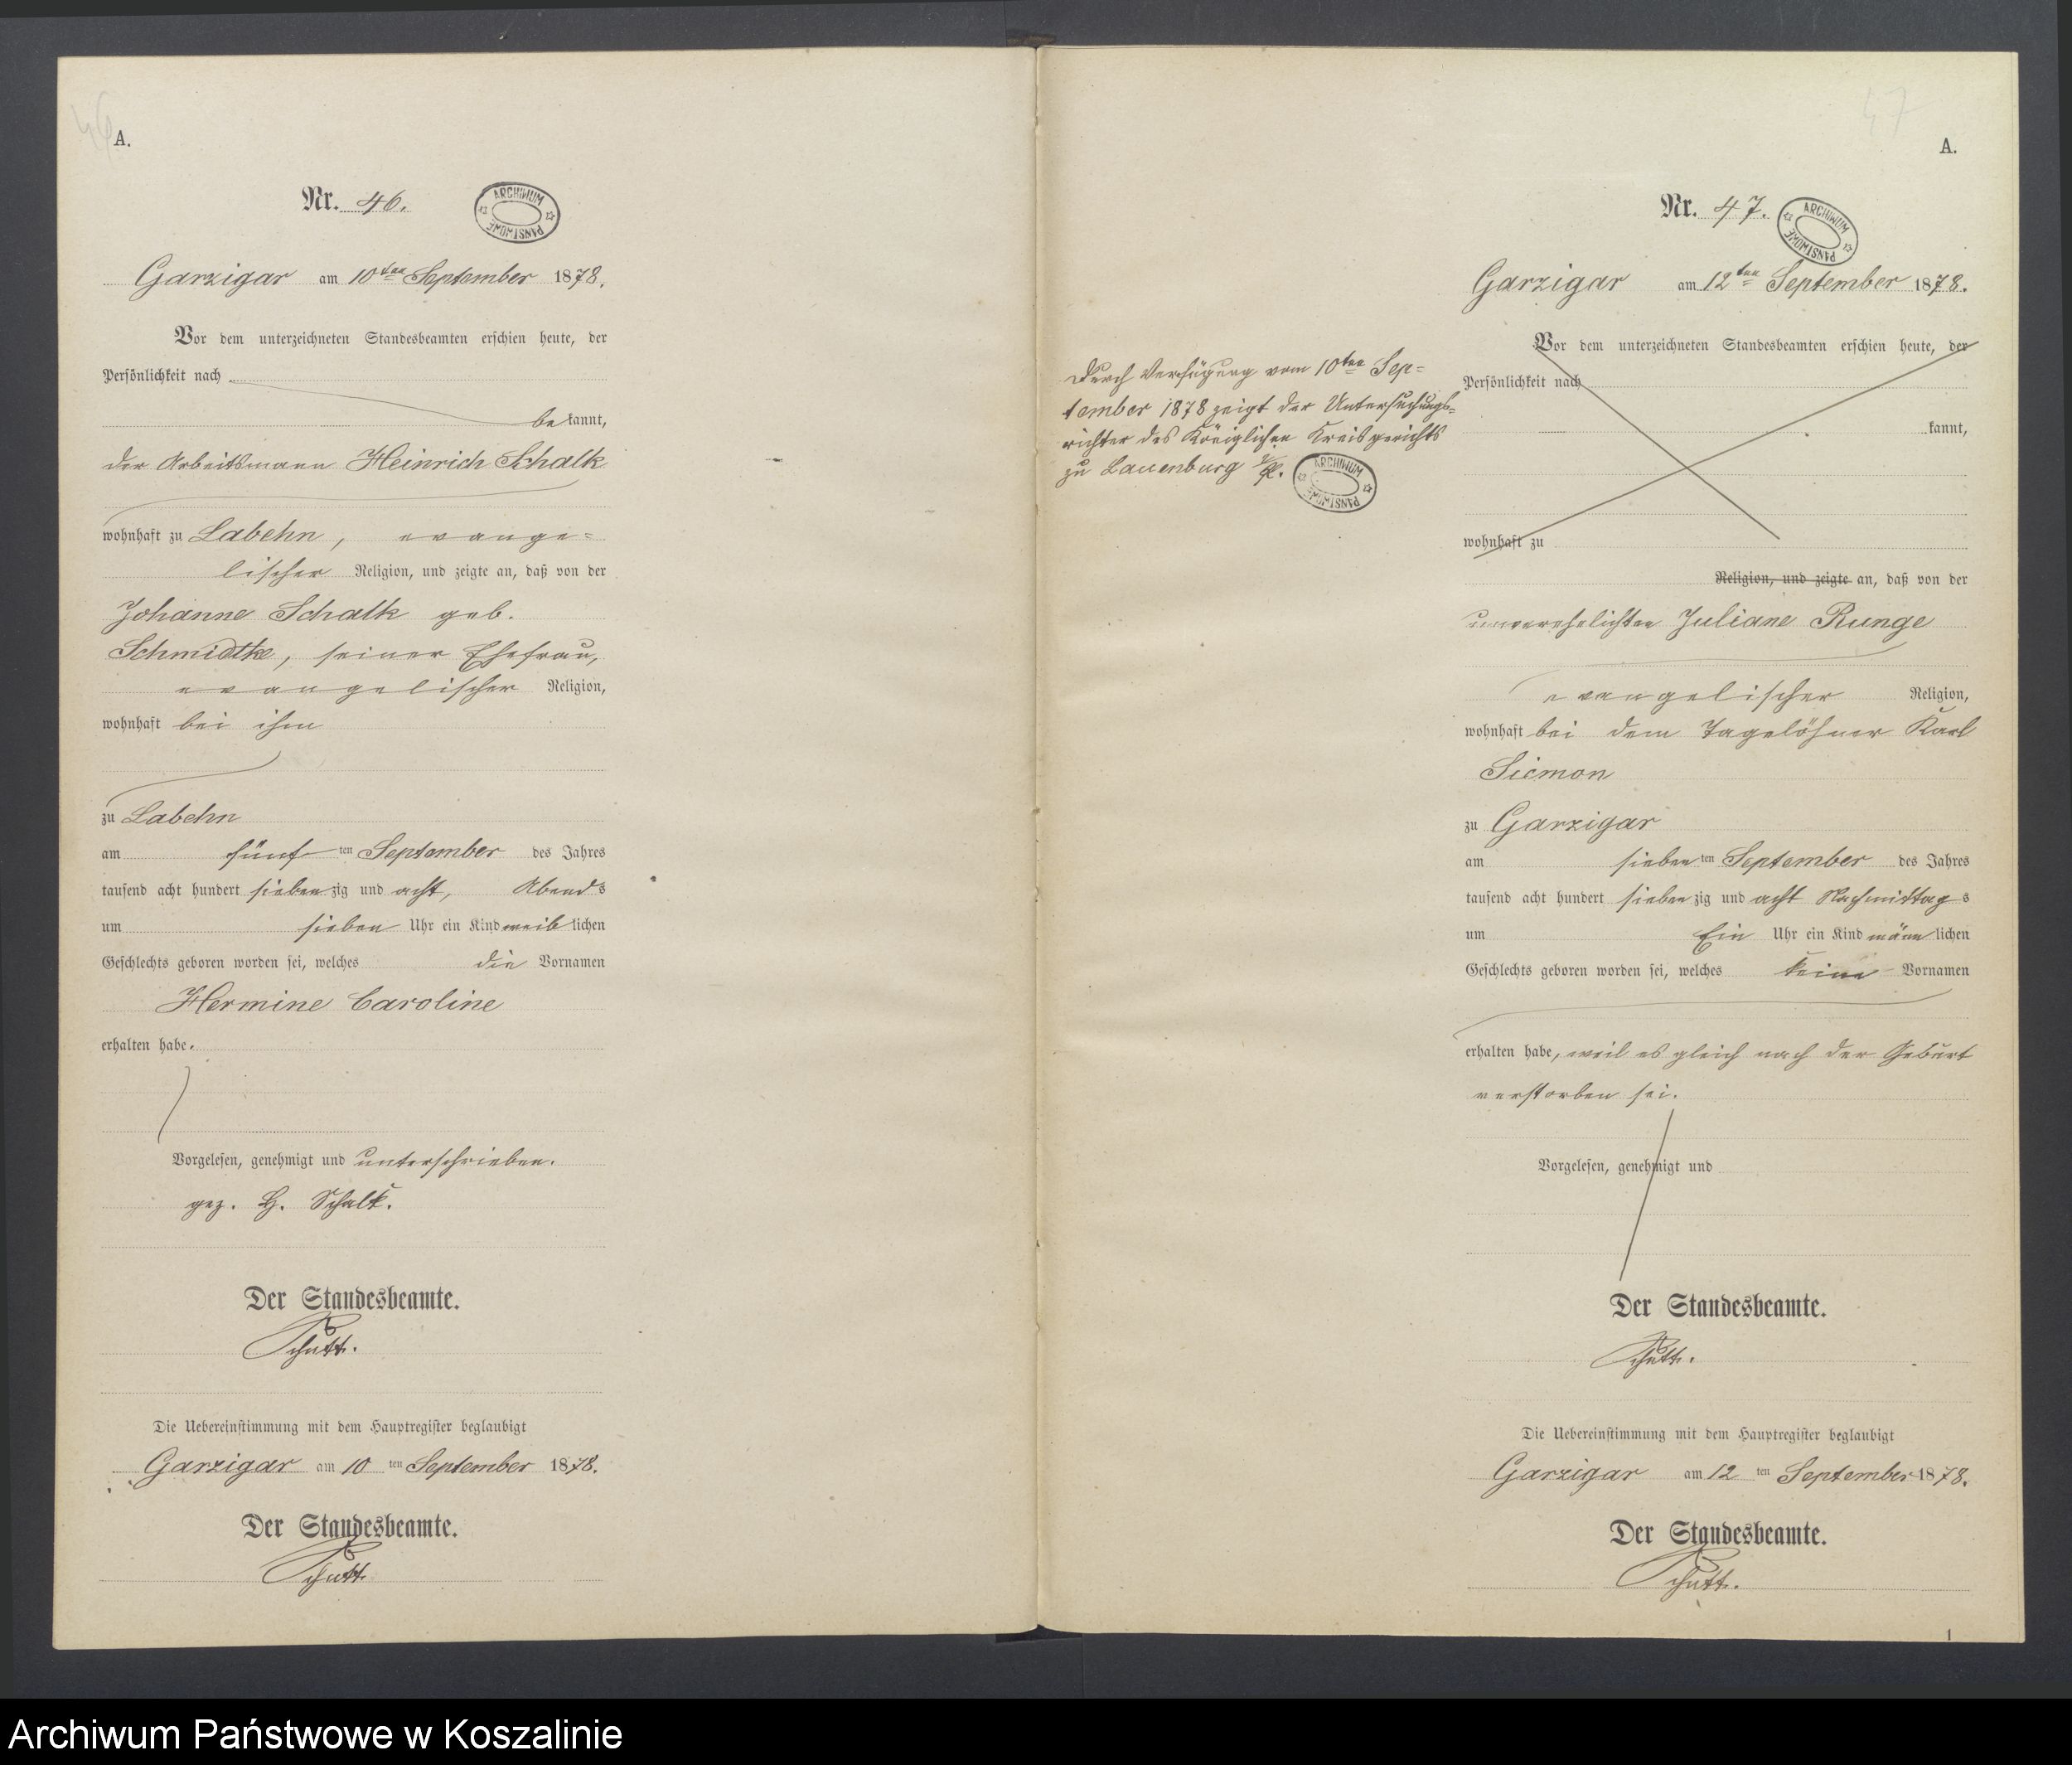 46
A.
Nr. 46.
ARCHIWUM PAŃSTWOWE
Garzigar am 10ten September 1878.
Vor dem unterzeichneten Standesbeamten erschien heute, der
Persönlichkeit nach
bekannt,
der Arbeitsmann Heinrich Schalk
wohnhaft zu Labehn, evange-
lischer Religion, und zeigte an, daß von der
Johanne Schalk geb.
Schmidtke, seiner Ehefrau,
evangelischer Religion,
wohnhaft bei ihm
zu Labehn
am fünften September des Jahres
tausend acht hundert siebenzig und acht, Abends
um sieben Uhr ein Kind weiblichen
Geschlechts geboren worden sei, welches die Vornamen
Hermine Caroline
erhalten habe.
Vorgelesen, genehmigt und unterschrieben.
gez. H. Schalk.
Der Standesbeamte.
Schutt.
Die Uebereinstimmung mit dem Hauptregister beglaubigt
Garzigar am 10 ten September 1878.
Der Standesbeamte.
Schutt.
47
A.
Nr. 47.
ARCHIWUM PAŃSTWOWE
Garzigar am 12ten September 1878.
Durch Verfügung vom 10ten Sep-
tember 1878 zeigt der Untersuchungs-
richter des Königlichen Kreisgerichts
zu Lauenburg i/P.
ARCHIWUM PAŃSTWOWE
Vor dem unterzeichneten Standesbeamten erschien heute, der
Persönlichkeit nach
kannt,
wohnhaft zu
Religion, und zeigte an, daß von der
unverehelichten Juliane Runge
evangelischer Religion,
wohnhaft bei dem Tagelöhner Karl
Siemon
zu Garzigar
am siebenten September des Jahres
tausend acht hundert siebenzig und acht Nachmittags
um Ein Uhr ein Kind männlichen
Geschlechts geboren worden sei, welches keine Vornamen
erhalten habe, weil es gleich nach der Geburt
verstorben sei.
Vorgelesen, genehmigt und
Der Standesbeamte.
Schutt.
Die Uebereinstimmung mit dem Hauptregister beglaubigt
Garzigar am 12 ten September 1878.
Der Standesbeamte.
Schutt.
1
Archiwum Państwowe w Koszalinie